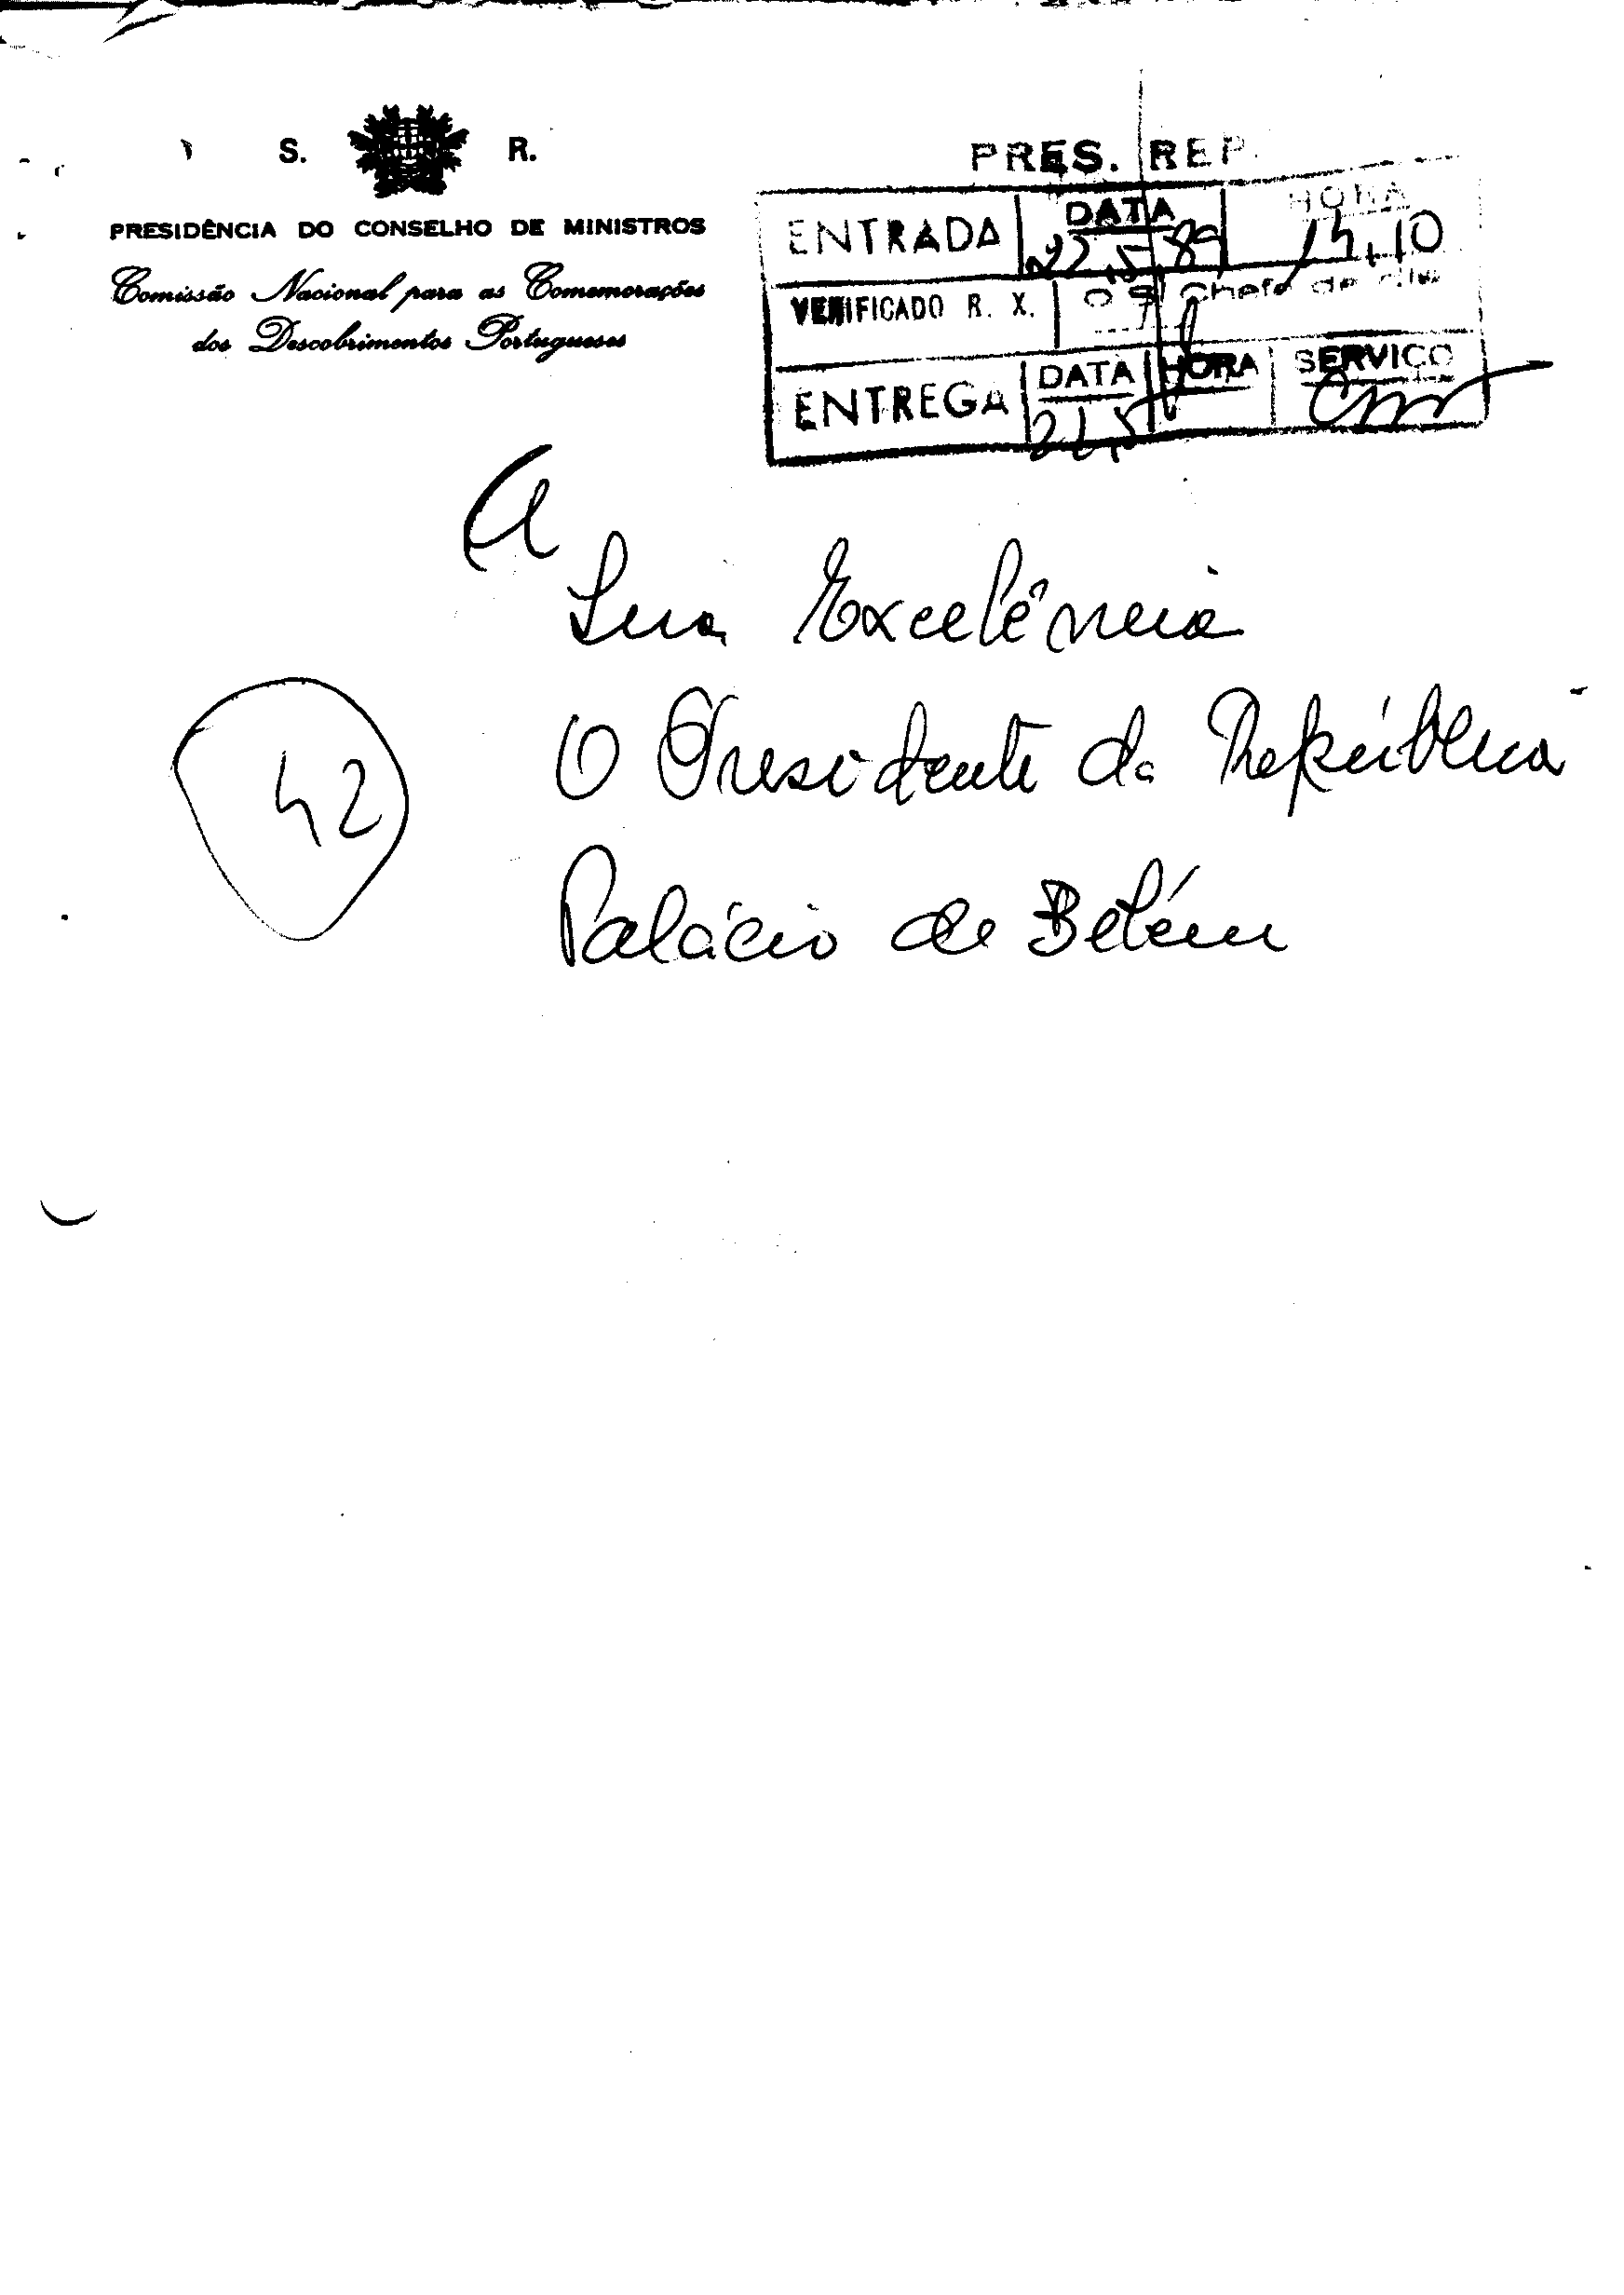 S. R.
PRESIDÊNCIA DO CONSELHO DE MINISTROS
Comissão Nacional para as Comemorações
dos Descobrimentos Portugueses
PRES. REP.
ENTRADA DATA HORA
22.5.89
VERIFICADO R. X. O Chefe de
ENTREGA DATA HORA SERVIÇO
A
Sua Excelência
O Presidente da República
Palácio de Belém
42